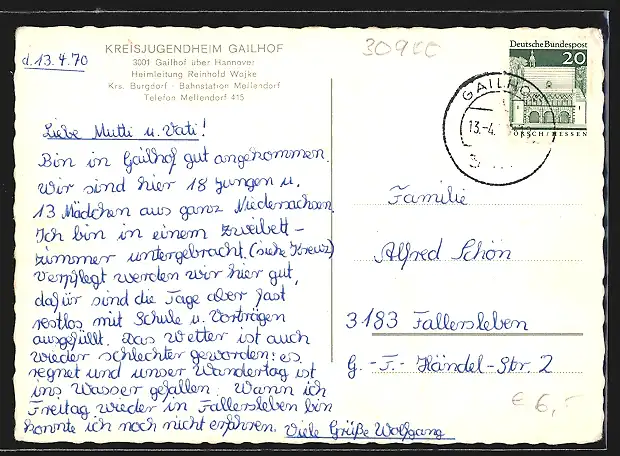 KREISJUGENDHEIM GAILHOF
3001 Gailhof über Hannover
Heimleitung Reinhold Wojke
Krs. Burgdorf - Bahnstation Mellendorf
Telefon Mellendorf 415
d. 13.4.70
Liebe Mutti u. Vati!
Bin in Gailhof gut angekommen.
Wir sind hier 18 Jungen u.
13 Mädchen aus ganz Niedersachsen.
Ich bin in einem Zweibett-
zimmer untergebracht. (siehe Kreuz)
Verpflegt werden wir hier gut,
dafür sind die Tage aber fast
restlos mit Schule u. Vorträgen
ausgefüllt. Das Wetter ist auch
wieder schlechter geworden: es
regnet und unser Wandertag ist
ins Wasser gefallen. Wann ich
Freitag wieder in Fallersleben bin
konnte ich noch nicht erfahren. Viele Grüße Wolfgang
Deutsche Bundespost
20
LORSCH/HESSEN
GAILHOF
13.-4.
Familie
Alfred Schön
3183 Fallersleben
G.-F.-Händel-Str. 2
€ 6,-